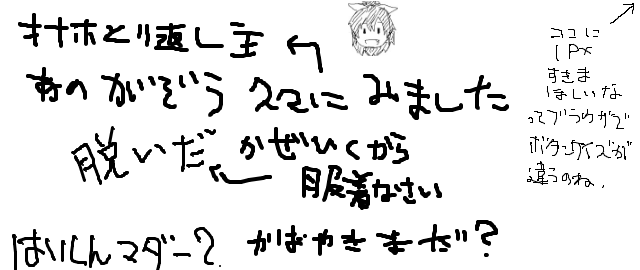 オナホとり返し主
あのがぞう久々にみました
脱いだ
かぜひくから
服着なさい
はいしんマダー?
かばやきまだ?
ココに
1px
すきま
ほしいな
ってブラウザで
ボタンサイズが
違うのね、